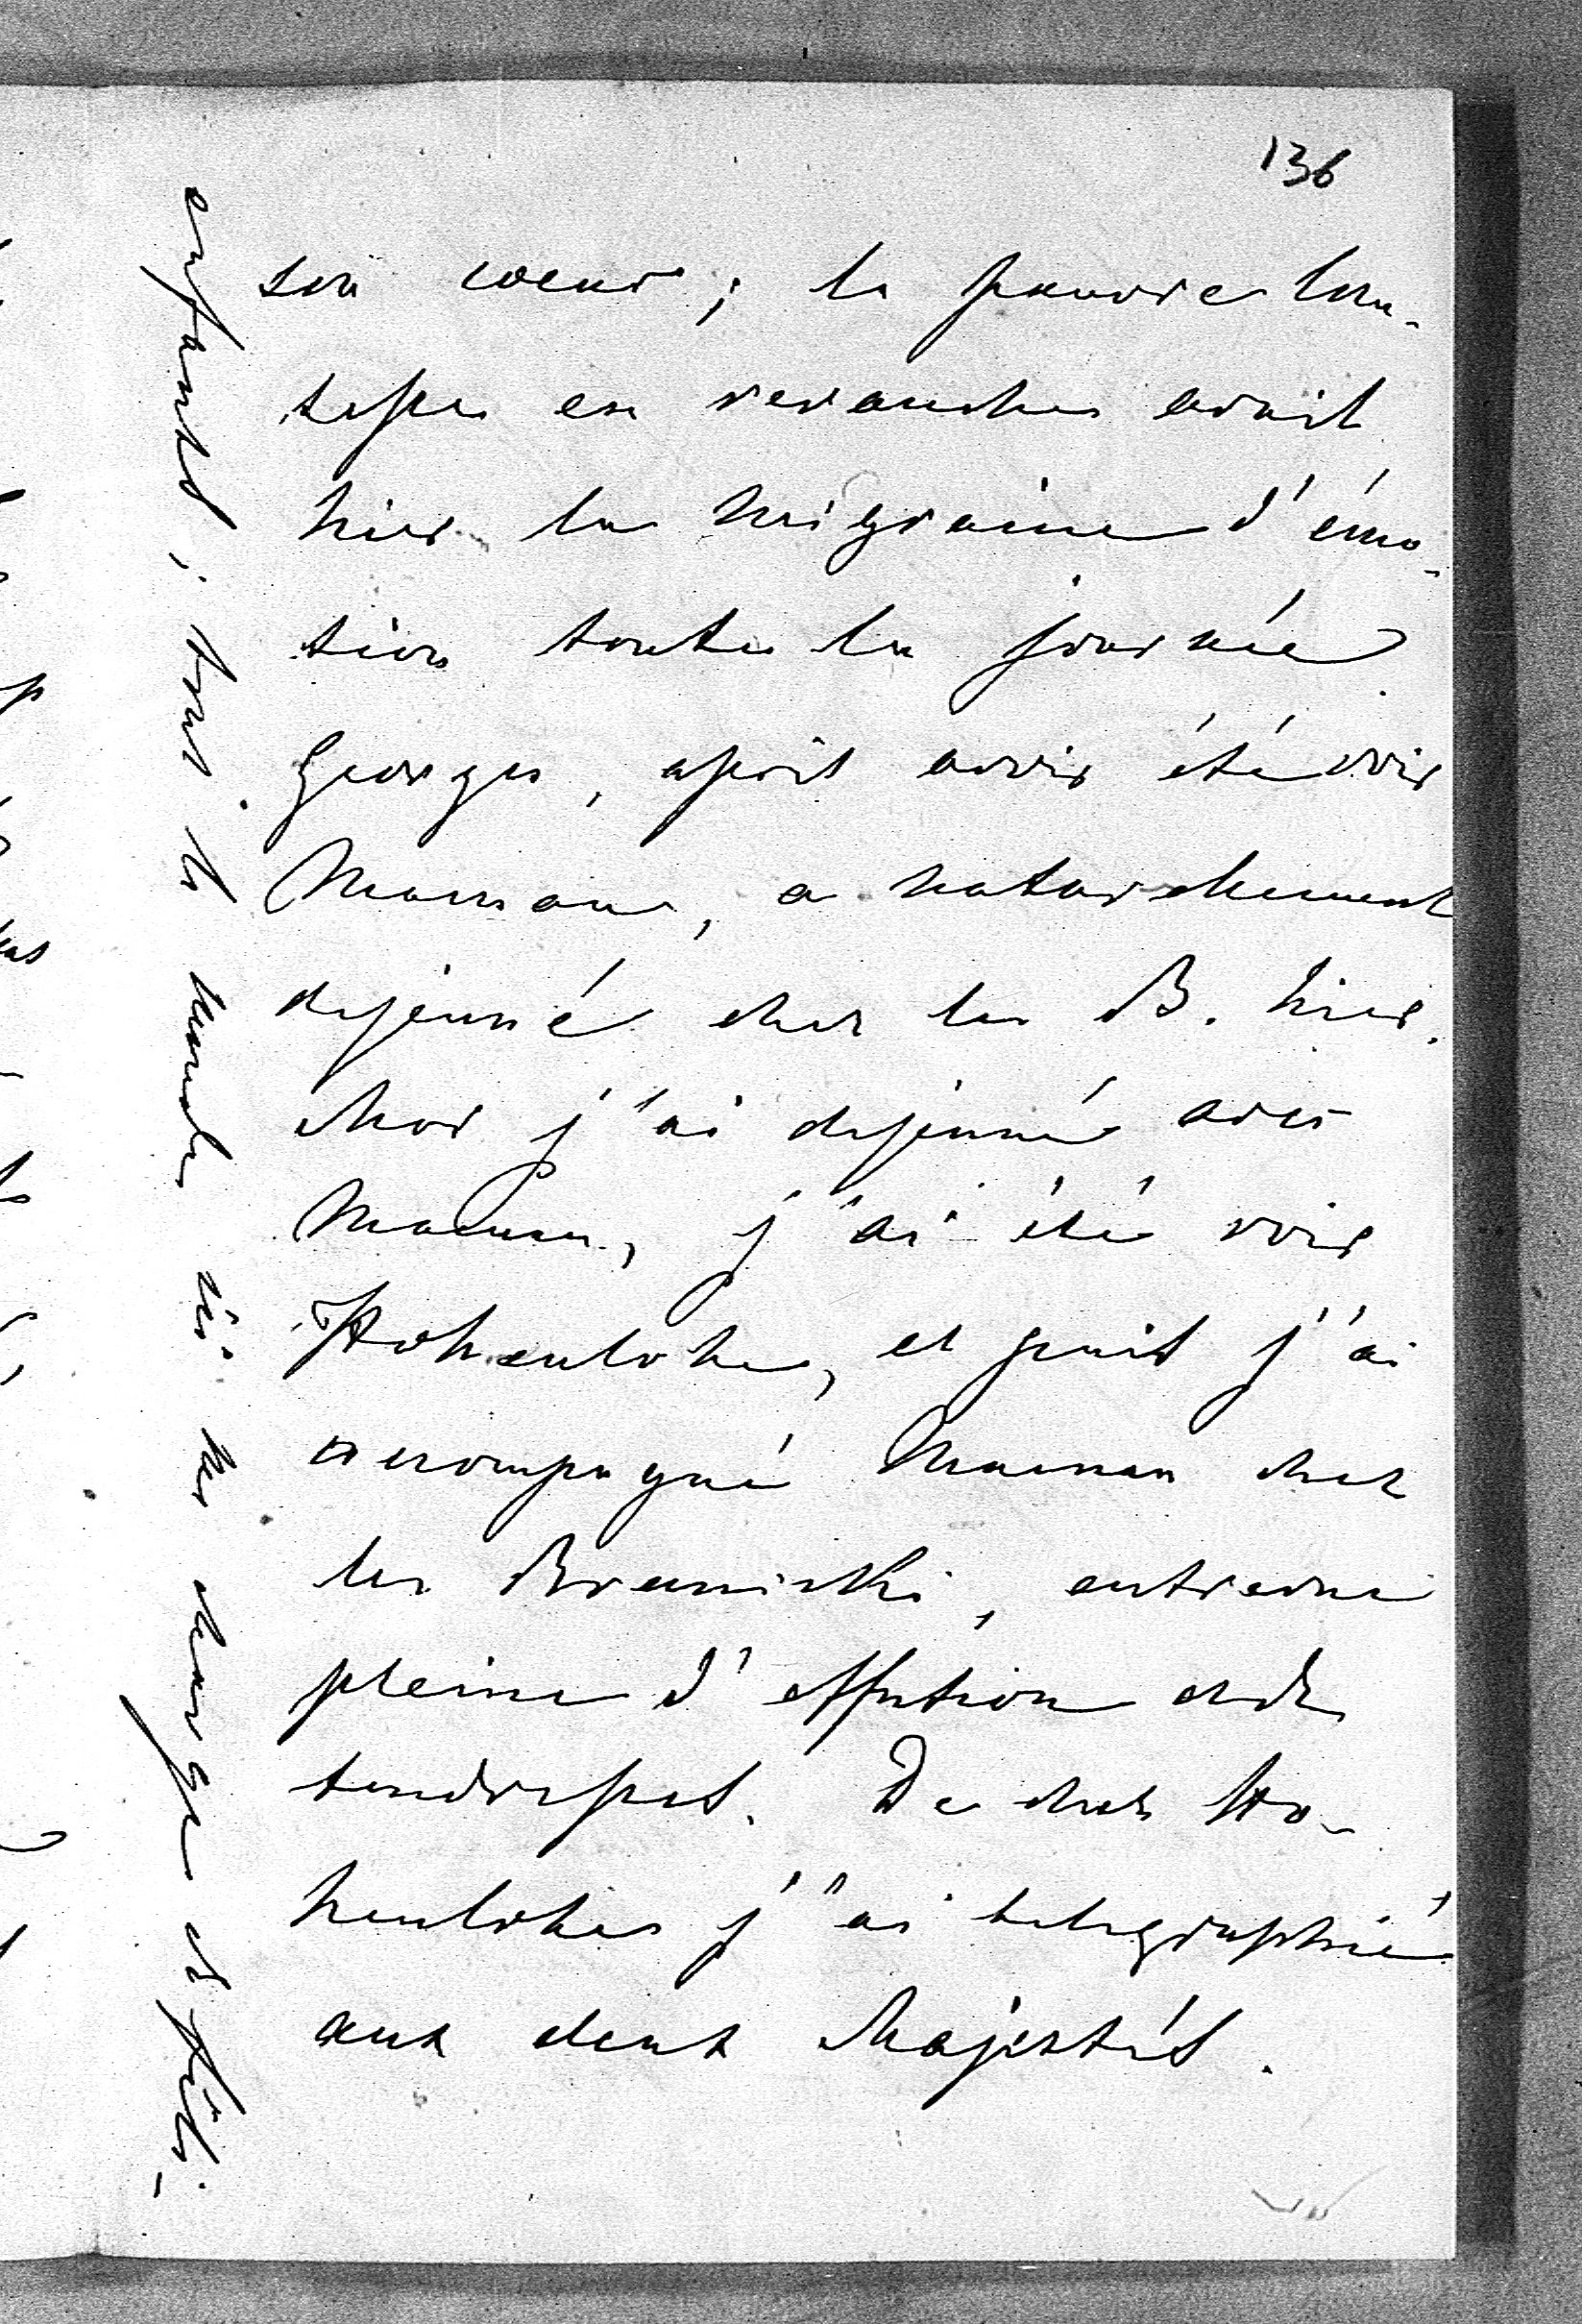 136
son coeur; la pauvre Com-
tesse en revanche avait
hier la migraine d'émo-
tion toute la journée
Georges, après avoir été voir
Maman, a naturellement
dejeuné chez les B. hier.
Moi j'ai dejeuné avec
Maman, j'ai été voir
Hohenlohe, et puis j'ai
accompagné Maman chez
les Branicki, entrevue
pleine d'effusion et de
tendresses. De chez Ho-
henlohe j'ai telegraphié
aux deux Majestés.
enfants; tout le monde ici me charge de félici-